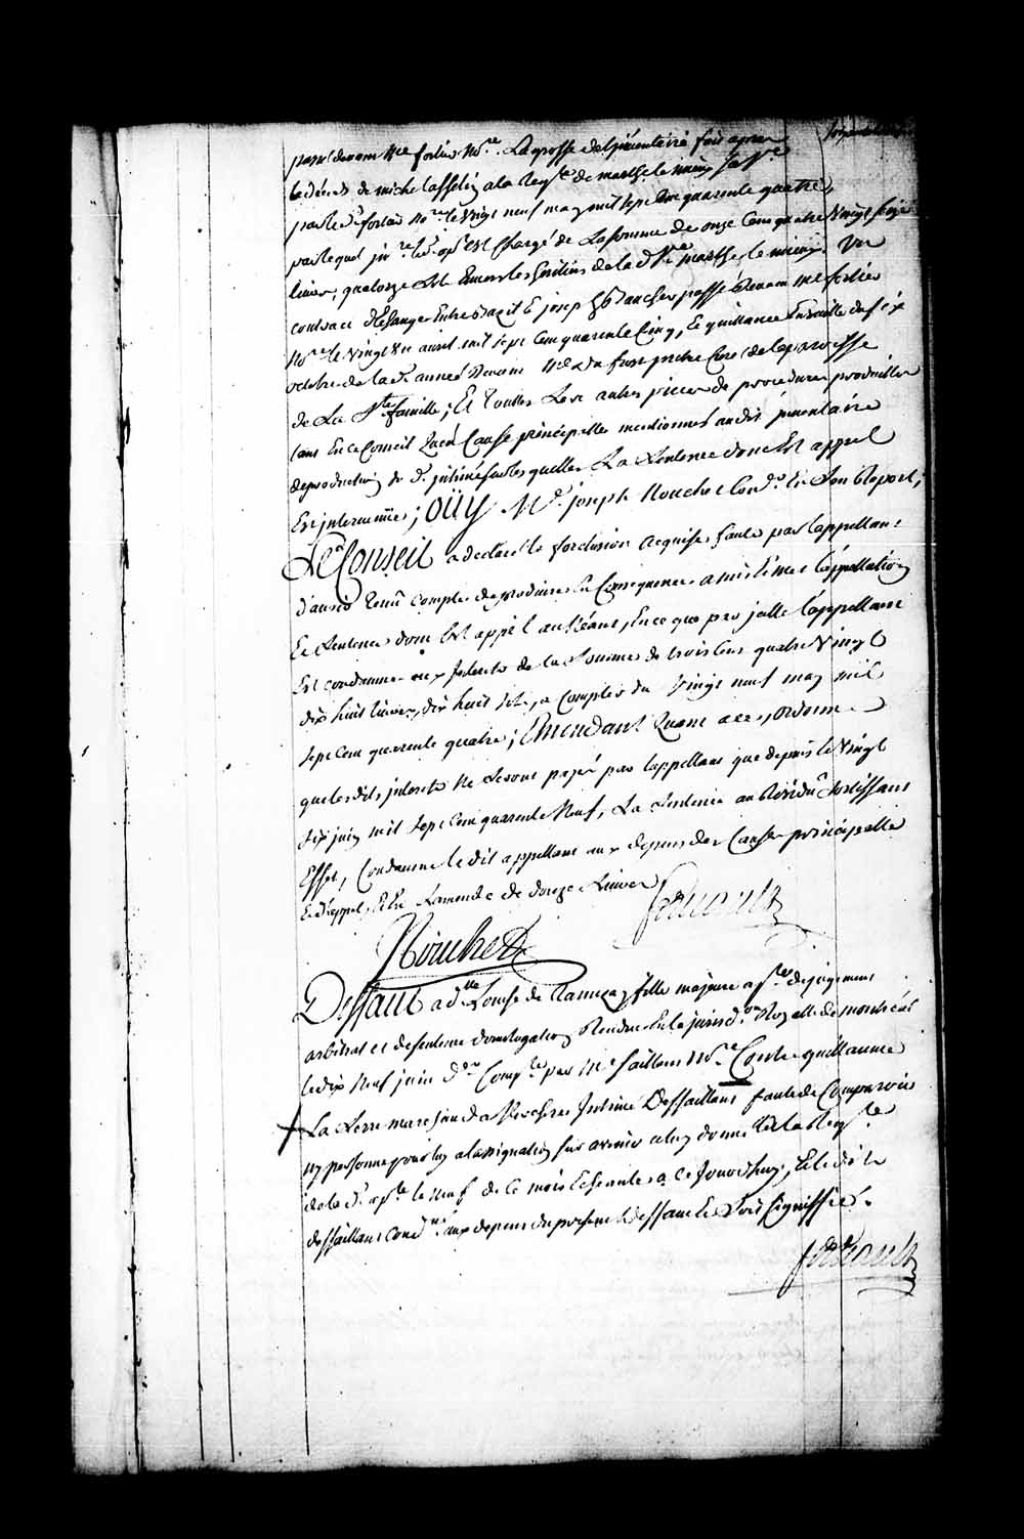 devant Me fortier No.re La grosse de l'Inventaire fait apres
le déceds de michel asselin a la Req.te de marthe le mieux sa v.e
par led. fortier No.re le vingt neuf may mil sept cent quarente quatre,
par lequel Led. est Chargé de La somme de onze Cens quatre vingt seize
livres, quatorze sols Envers les heritiers de la d. V.e marthe le mieux. Un
contract d'Eschange Entre & joseph passé devant me fortier
No.re le vingt un avril mil sept Cens quarente Cinq, Et quittance Ensuitte du six
octobre de la d. année devant prestre Curé de la parroisse
de La S.te famille; Et Touttes Les autres pieces de procedures produittes
tant En ce Conseil qu'en Cause principalle mentionnés audit Inventaire
de production du d. intimé sur lesquelles La Sentence dont Est appel
Est intervenüe; OÜY M.e joseph Nouchet Con.er En Son Raport;
Le Conseil a declaré la forclusion acquise, faute par l'appellant
d'avoir tenu compte de produire En Consequence a mis Et met l'appellation
Et Sentence dont Est appel au Néant, En ce que par jcelle l'appellant
Est condamné aux Interests de la Somme de trois Cens quatre Vingt
dix huit livres, dix huit sols, a Compter du Vingt neuf may mil
sept Cent quarente quatre; Emendant Quant a ce, ordonne
que lesdits jnterests ne seront payés par l'appellant que depuis le Vingt
six juin mil sept Cent quarente Neuf, La Sentence au Résidu sortissant
Effet, Condamne le dit appellant aux depens des Causes principalle
Et d'appel, Et En L'amende de douze Livres
Foucault
Nouchet
Deffaut a d.lle Louise de Ramezay fille majeure ap.te de jugement
arbitral et de sentence d'omologation Rendue En la jurisd.on Royalle de montréal
le dix neuf juin d.er Comp.te par Me Saillant No.re Contre guillaume
La Serre marchand Intimé Deffaillant faute de Comparoir
ny personne pour luy a l'assignation sur avenir a luy donné a la Req.te
de la d. ap.te le neuf de Ce mois Echeante a Ce Jourd'huy, Et le dit
deffaillant cond.né aux depens du present deffaut Et Soit Signiffié.
Foucault